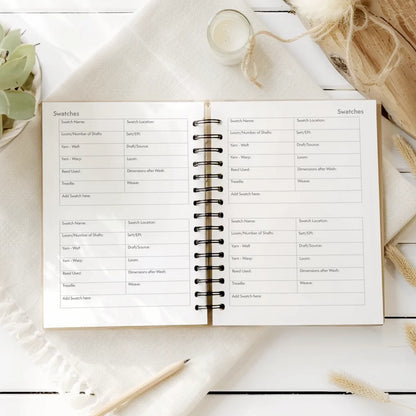 Swatches
Swatch Name: Swatch Location:
Loom/Number of Shafts: Sett/EPI:
Yarn - Weft Draft/Source:
Yarn - Warp: Loom:
Reed Used: Dimensions after Wash:
Treadle: Weave:
Add Swatch here:
Swatch Name: Swatch Location:
Loom/Number of Shafts: Sett/EPI:
Yarn - Weft Draft/Source:
Yarn - Warp: Loom:
Reed Used: Dimensions after Wash:
Treadle: Weave:
Add Swatch here:
Swatches
Swatch Name: Swatch Location:
Loom/Number of Shafts: Sett/EPI:
Yarn - Weft Draft/Source:
Yarn - Warp: Loom:
Reed Used: Dimensions after Wash:
Treadle: Weave:
Add Swatch here:
Swatch Name: Swatch Location:
Loom/Number of Shafts: Sett/EPI:
Yarn - Weft Draft/Source:
Yarn - Warp: Loom:
Reed Used: Dimensions after Wash:
Treadle: Weave:
Add Swatch here: